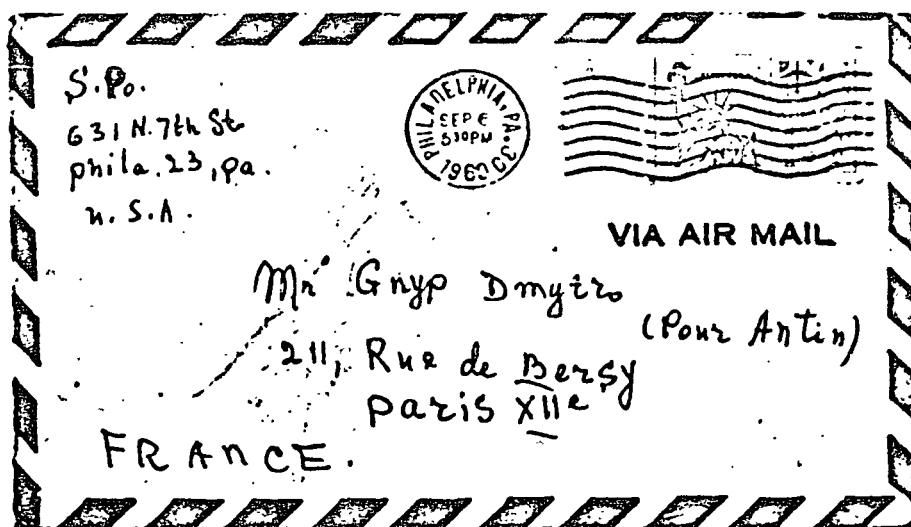 S.Po.
631 N. 7th St
phila. 23, pa.
U.S.A.
PHILADELPHIA, PA.
SEP 6
530PM
1960
VIA AIR MAIL
Mr Gnyp Dmytro
(Pour Antin)
211, Rue de Bersy
Paris XIIe
FRANCE.